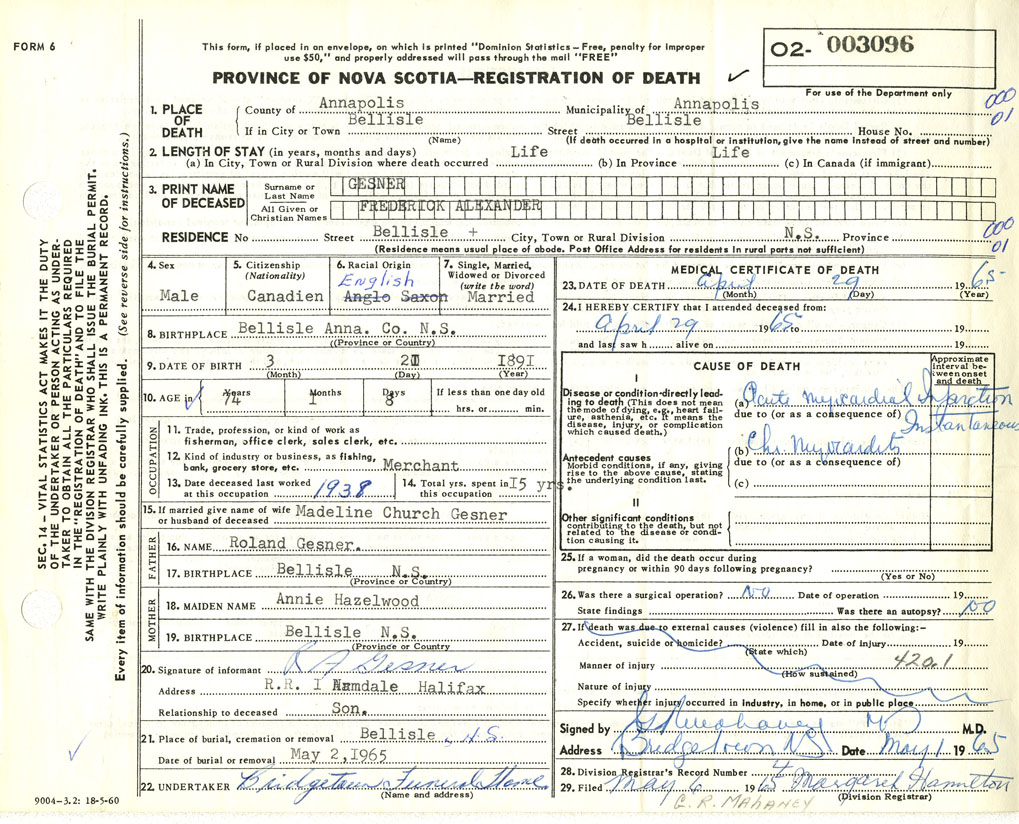 FORM 6
This form, if placed in an envelope, on which is printed "Dominion Statistics – Free, penalty for improper
use $50," and properly addressed will pass through the mail "FREE"
PROVINCE OF NOVA SCOTIA—REGISTRATION OF DEATH
02- 003096
For use of the Department only
000
01
1. PLACE OF DEATH
County of Annapolis Municipality of Annapolis
If in City or Town Bellisle Street Bellisle House No.
(Name) (If death occurred in a hospital or institution, give the name instead of street and number)
2. LENGTH OF STAY (in years, months and days)
(a) In City, Town or Rural Division where death occurred Life (b) In Province Life (c) In Canada (if immigrant)
3. PRINT NAME OF DECEASED
Surname or Last Name GESNER
All Given or Christian Names FREDERICK ALEXANDER
RESIDENCE No Street Bellisle + City, Town or Rural Division N.S. Province
000
01
(Residence means usual place of abode. Post Office Address for residents in rural parts not sufficient)
4. Sex
Male
5. Citizenship (Nationality)
Canadien
6. Racial Origin
English
Anglo Saxon
7. Single, Married, Widowed or Divorced (write the word)
Married
8. BIRTHPLACE Bellisle Anna. Co. N.S.
(Province or Country)
9. DATE OF BIRTH 3 21 1891
(Month) (Day) (Year)
10. AGE in Years 74 Months 1 Days 8 If less than one day old hrs. or min.
OCCUPATION
11. Trade, profession, or kind of work as
fisherman, office clerk, sales clerk, etc.
12. Kind of industry or business, as fishing,
bank, grocery store, etc. Merchant
13. Date deceased last worked at this occupation 1938
14. Total yrs. spent in this occupation 15 yrs.
15. If married give name of wife or husband of deceased Madeline Church Gesner
FATHER
16. NAME Roland Gesner.
17. BIRTHPLACE Bellisle N.S.
(Province or Country)
MOTHER
18. MAIDEN NAME Annie Hazelwood
19. BIRTHPLACE Bellisle N.S.
(Province or Country)
20. Signature of informant R A Gesner
Address R.R. I Armdale Halifax
Relationship to deceased Son.
21. Place of burial, cremation or removal Bellisle, N.S.
Date of burial or removal May 2,1965
22. UNDERTAKER Bridgetown Funeral Home
(Name and address)
MEDICAL CERTIFICATE OF DEATH
23. DATE OF DEATH April 29 1965
(Month) (Day) (Year)
24. I HEREBY CERTIFY that I attended deceased from:
April 29 1965 to 19
and last saw h alive on 19
CAUSE OF DEATH
Approximate interval between onset and death
I
Disease or condition directly leading to death (This does not mean
the mode of dying, e.g., heart failure, asthenia, etc. It means the
disease, injury, or complication
which caused death.)
(a) Acute Myocardial Infarction
due to (or as a consequence of) Instantaneous
Antecedent causes
Morbid conditions, if any, giving
rise to the above cause, stating
the underlying condition last.
(b) Chr. Myocarditis
due to (or as a consequence of)
(c)
II
Other significant conditions
contributing to the death, but not
related to the disease or condition causing it.
25. If a woman, did the death occur during
pregnancy or within 90 days following pregnancy?
(Yes or No)
26. Was there a surgical operation? NO Date of operation 19
State findings Was there an autopsy? NO
27. If death was due to external causes (violence) fill in also the following:–
Accident, suicide or homicide? Date of injury 19
(State which)
Manner of injury 420.1
(How sustained)
Nature of injury
Specify whether injury occurred in industry, in home, or in public place
Signed by M.D.
Address Bridgetown NS Date May 1 1965
28. Division Registrar's Record Number 4
29. Filed May 6 1965 Margaret Hamilton
(Division Registrar)
G. R. MAHANEY
9004–3.2: 18-5-60
SEC. 14 – VITAL STATISTICS ACT MAKES IT THE DUTY
OF THE UNDERTAKER OR PERSON ACTING AS UNDER-
TAKER TO OBTAIN ALL THE PARTICULARS REQUIRED
IN THE "REGISTRATION OF DEATH" AND TO FILE THE
SAME WITH THE DIVISION REGISTRAR WHO SHALL ISSUE THE BURIAL PERMIT.
WRITE PLAINLY WITH UNFADING INK. THIS IS A PERMANENT RECORD.
Every item of information should be carefully supplied. (See reverse side for instructions.)